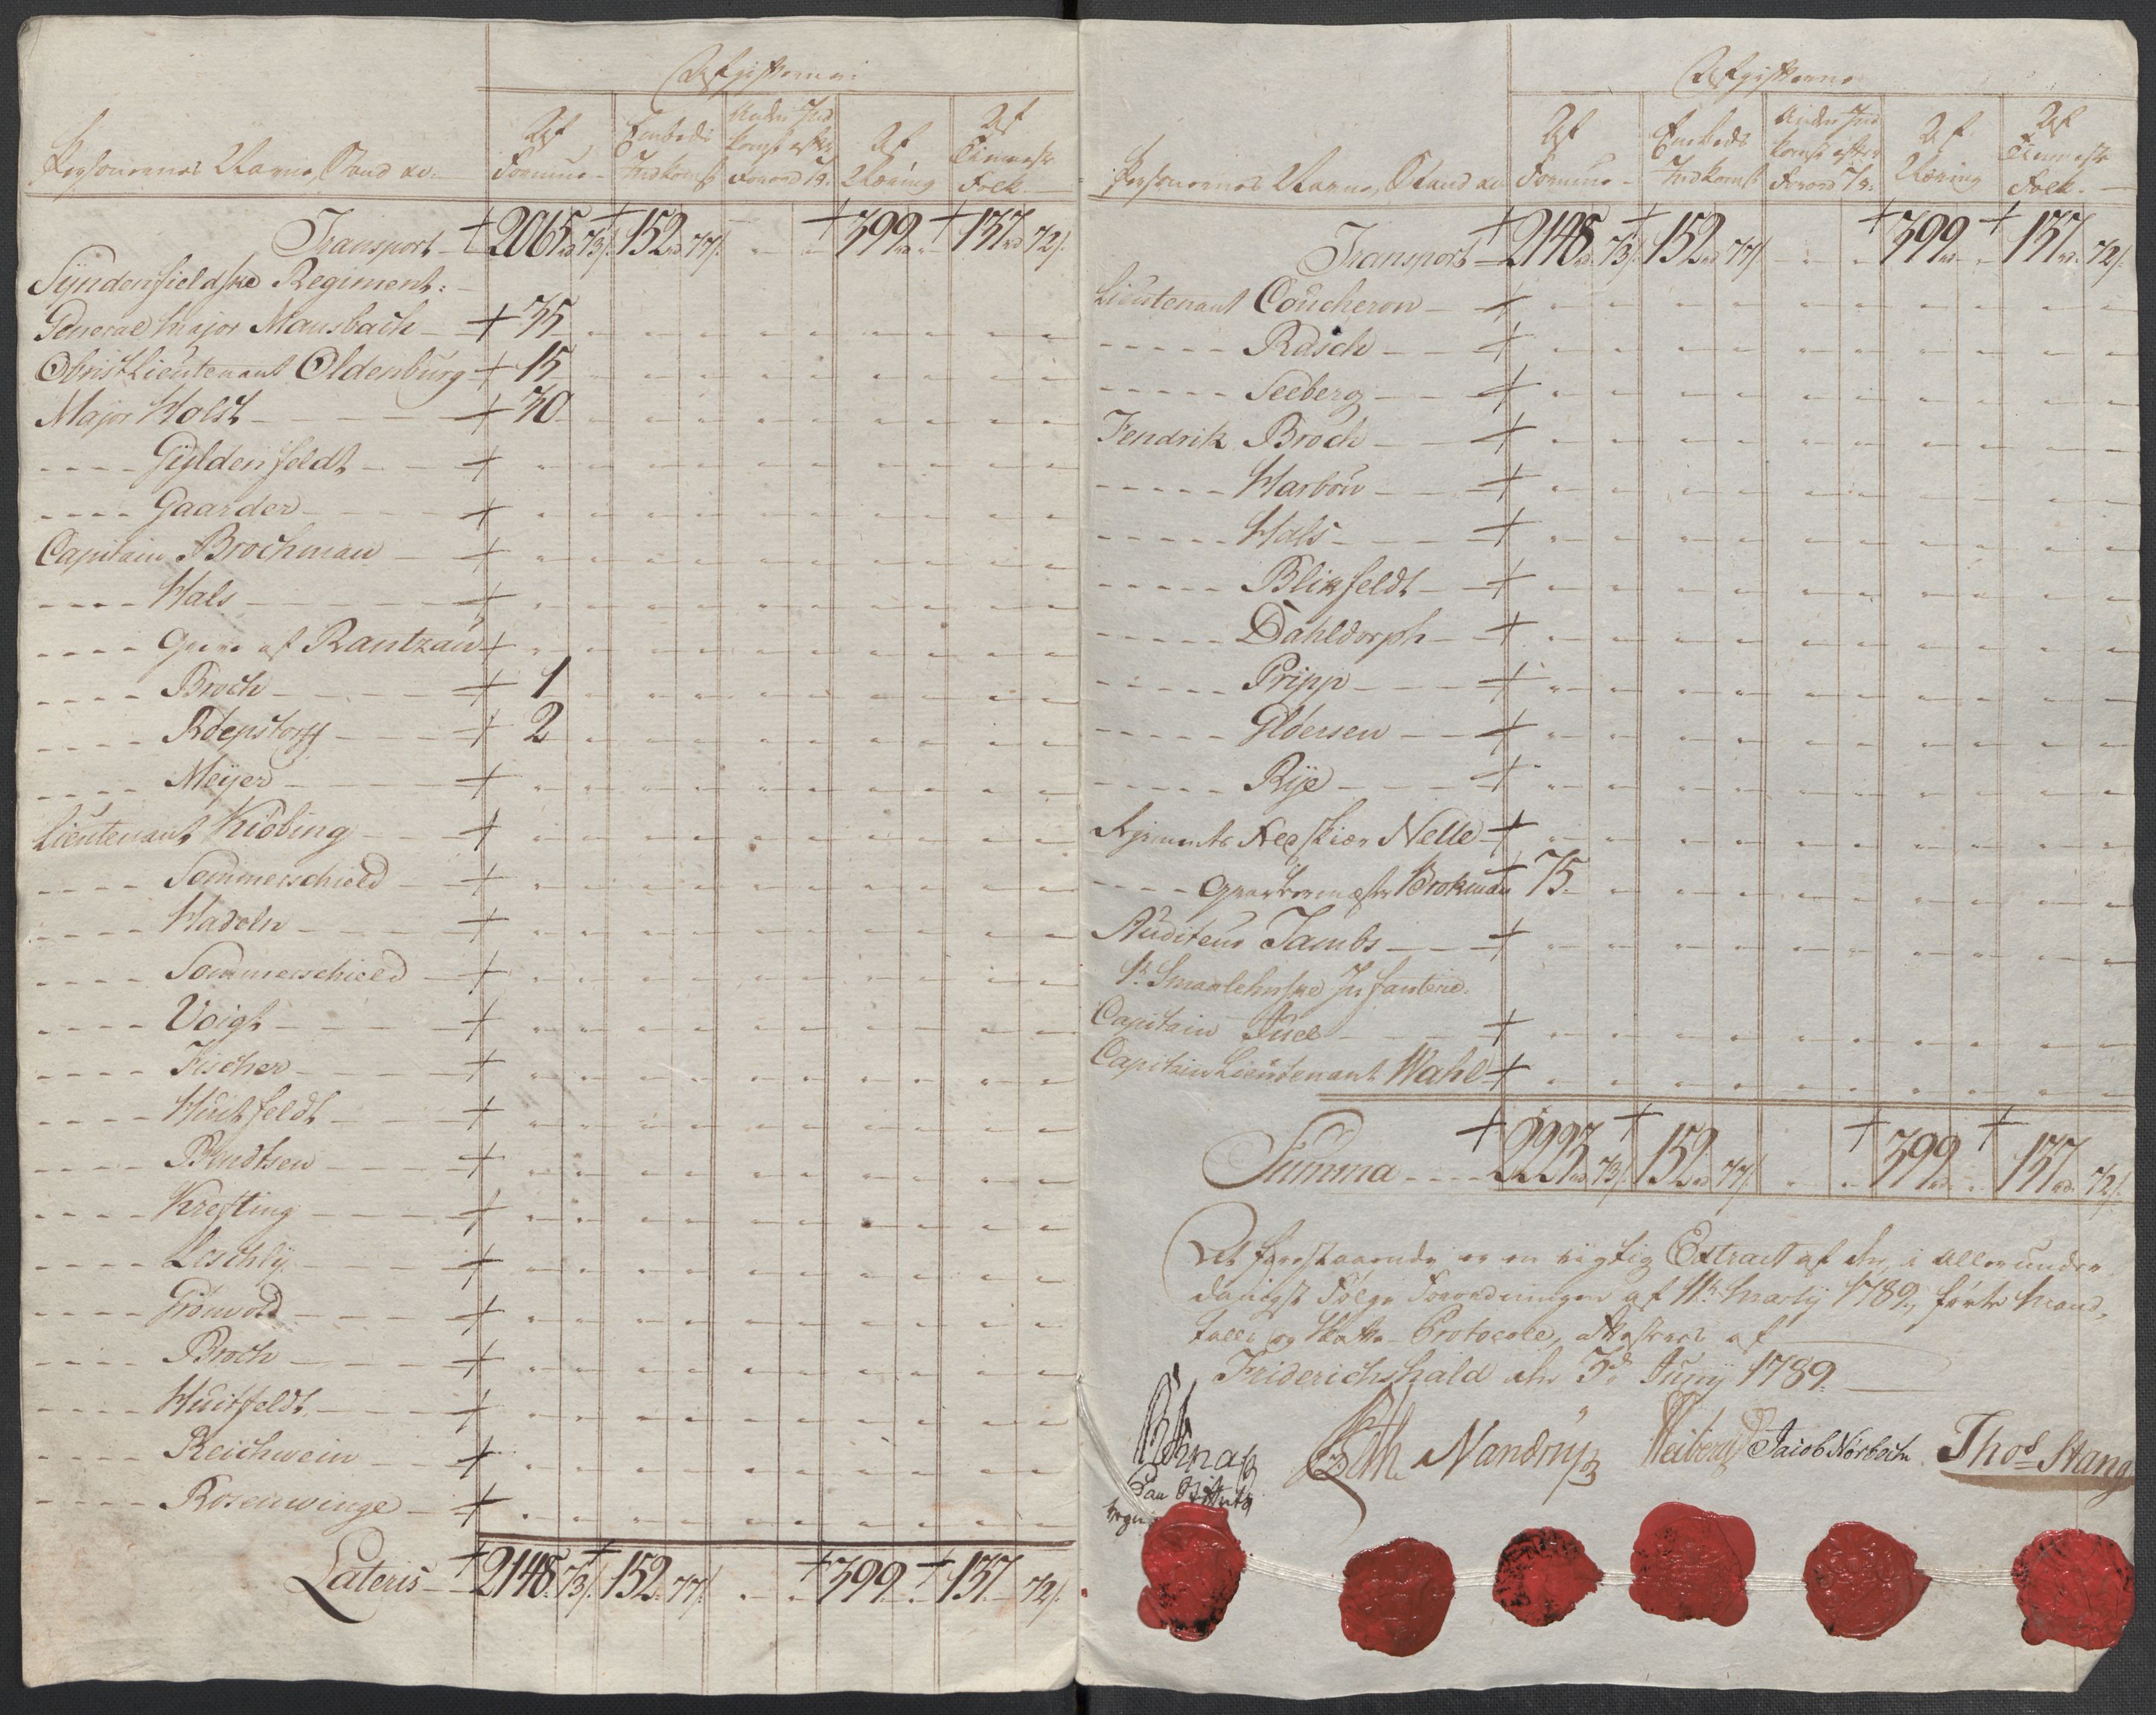 Afgifterne
Personernes Navne, Stand &c:
Af Formue
Embeds Indkomst
Anden Indkomst efter Forord 19.
Af Næring
Af Tienneste Folk.
Transport + 2065 rd 73 s. + 152 rd 77 s. + 399 rd + 137 rd 72 s.
Syndenfieldske Regiment:
General Major Mansbach + 35
Obrist Lieutenant Oldenburg + 15
Major Holst + 30
---- Gyldenfeldt +
---- Gaarder +
Capitain Brochman +
---- Hals +
---- Greve af Rantzau +
---- Broch + 1
---- Röepstorff + 2
---- Meyer +
Lieutenant Kiöbing +
---- Sommerschield +
---- Hadeln +
---- Sommerschield +
---- Voigt +
---- Fischer +
---- Huitfeldt +
---- Bendtsen +
---- Krefting +
---- Leschly +
---- Grönvold +
---- Broch +
---- Huitfeldt +
---- Reichwein +
---- Rosenwinge +
Lateris + 2148 73 s. + 152 77 s. + 399 + 137 72 s.
Afgifterne
Personernes Navne, Stand &c
Af Formue
Embeds Indkomst
Anden Indkomst efter Forord 19.
Af Næring
Af Tienneste Folk.
Transport + 2148 rd 73 s. + 152 rd 77 s. + 399 rd + 137 rd 72 s.
Lieutenant Coucheron +
----- Rasch +
----- Seeberg +
Fendrik Broch +
----- Harbou +
----- Hals +
----- Blixfeldt +
----- Dahldorph +
----- Pripp +
----- Glöersen +
----- Rye +
Regiments Feldskiær Nelle +
---- Qvartermester Brokman + 75
Auditeur Jambs +
1te Smaalehnske Infanterie.
Capitain Juel +
Capitain Lieutenant Wahl +
Summa + 2223 rd 73 s. + 152 rd 77 s. + 399 rd + 137 rd 72 s.
At forestaaende er en rigtig Extract af den i allerunder-
danigst Fölge Forordningen af 11te Martij 1789, förte Mand-
talls og Skatte Protocoll, attesteres af
Friderichshald den 3de Junij 1789.
Nandrup Heiberg Jacob Norbech Thos Stang